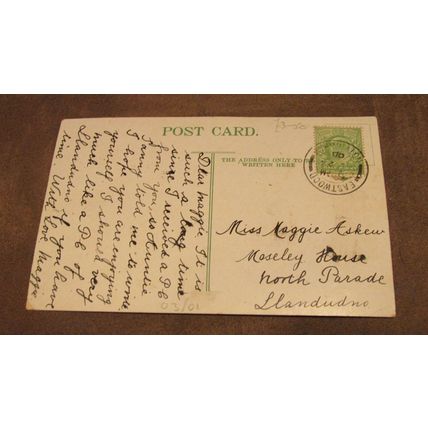 POST CARD.
THE ADDRESS ONLY TO BE
WRITTEN HERE
Dear Maggie It is
such a long time
since I received a P.C
from you, so Auntie
Fanny told me to write
I hope you are enjoying
yourself I should very
much like a P.C of
Llandudno if you have
time With love Maggie
EASTWOOD
Miss Maggie Askew
Moseley House
North Parade
Llandudno